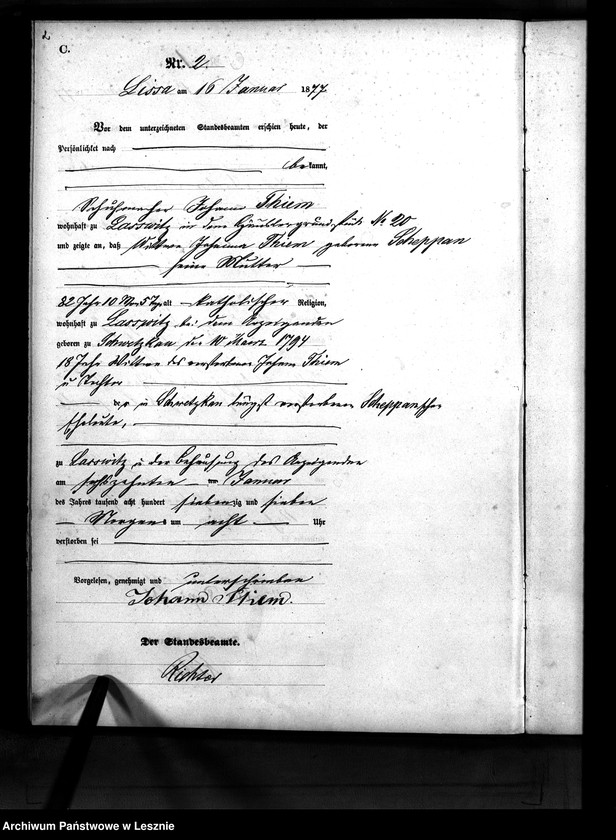 2
C.
Nr. 2.
Lissa am 16 Januar 1877.
Vor dem unterzeichneten Standesbeamten erschien heute, der
Persönlichkeit nach
bekannt,
Schuhmacher Johann Thiem
wohnhaft zu Lasswitz in dem Häuslergrundstück No 20
und zeigte an, daß Wittwe Johanna Thiem geborene Scheppan
seine Mutter
82 Jahr 10 Mon 5 Tg alt katholischer Religion,
wohnhaft zu Lasswitz bei dem Anzeigenden
geboren zu Schwetzkau, den 10 März 1794
18 Jahr Wittwe des verstorbenen Johann Thiem
u Tochter
der in Schwetzkau längst verstorbenen Scheppanschen
Eheleute,
zu Lasswitz in der Behausung des Anzeigenden
am sechszehnten ten Januar
des Jahres tausend acht hundert siebenzig und sieben
Morgens um acht Uhr
verstorben sei
Vorgelesen, genehmigt und unterschrieben
Johann Thiem.
Der Standesbeamte.
Richter
Archiwum Państwowe w Lesznie